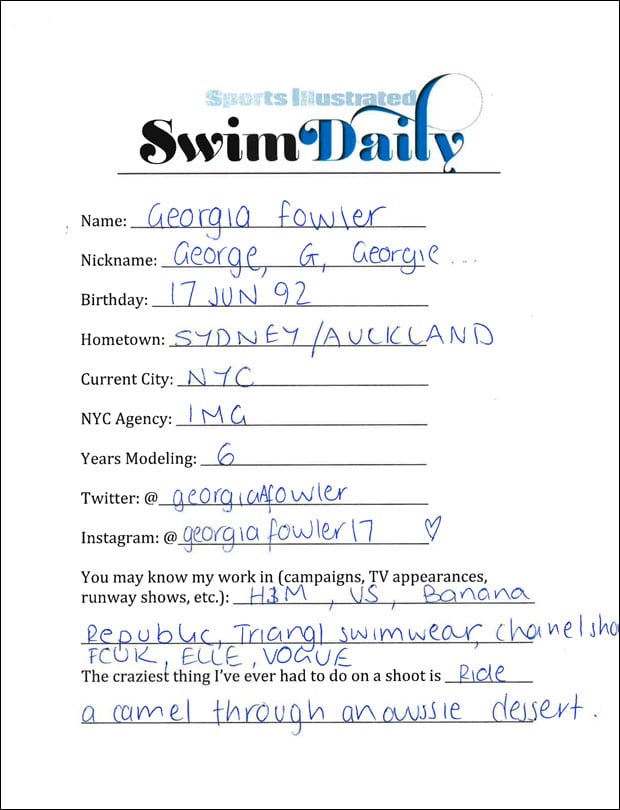 Sports Illustrated
Swim Daily
Name: Georgia Fowler
Nickname: George, G, Georgie ...
Birthday: 17 JUN 92
Hometown: SYDNEY/AUCKLAND
Current City: NYC
NYC Agency: IMG
Years Modeling: 6
Twitter: @ georgiaAfowler
Instagram: @ georgiafowler17 ♡
You may know my work in (campaigns, TV appearances,
runway shows, etc.): H&M, VS, Banana
Republic, Triangl swimwear, chanel sho
FCUK, ELLE, VOGUE
The craziest thing I've ever had to do on a shoot is Ride
a camel through an aussie dessert.